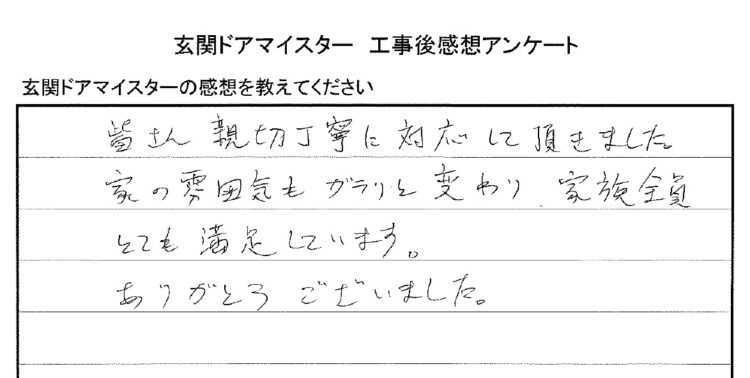 玄関ドアマイスター 工事後感想アンケート
玄関ドアマイスターの感想を教えてください
皆さん 親切丁寧に対応して頂きました。
家の雰囲気もガラリと変わり、家族全員
とても満足しています。
ありがとう ございました。